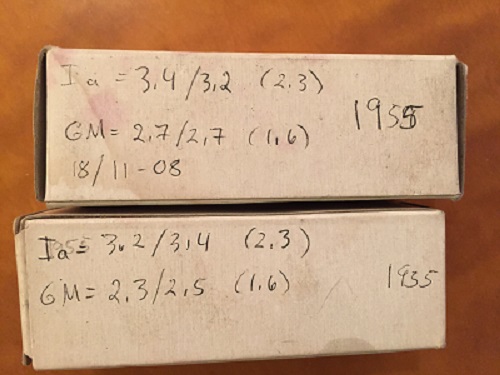 Ia = 3,4/3,2 (2,3)
1955
GM = 2,7/2,7 (1,6)
18/11-08
Ia = 3,2/3,4 (2,3)
GM = 2,3/2,5 (1,6)
1935